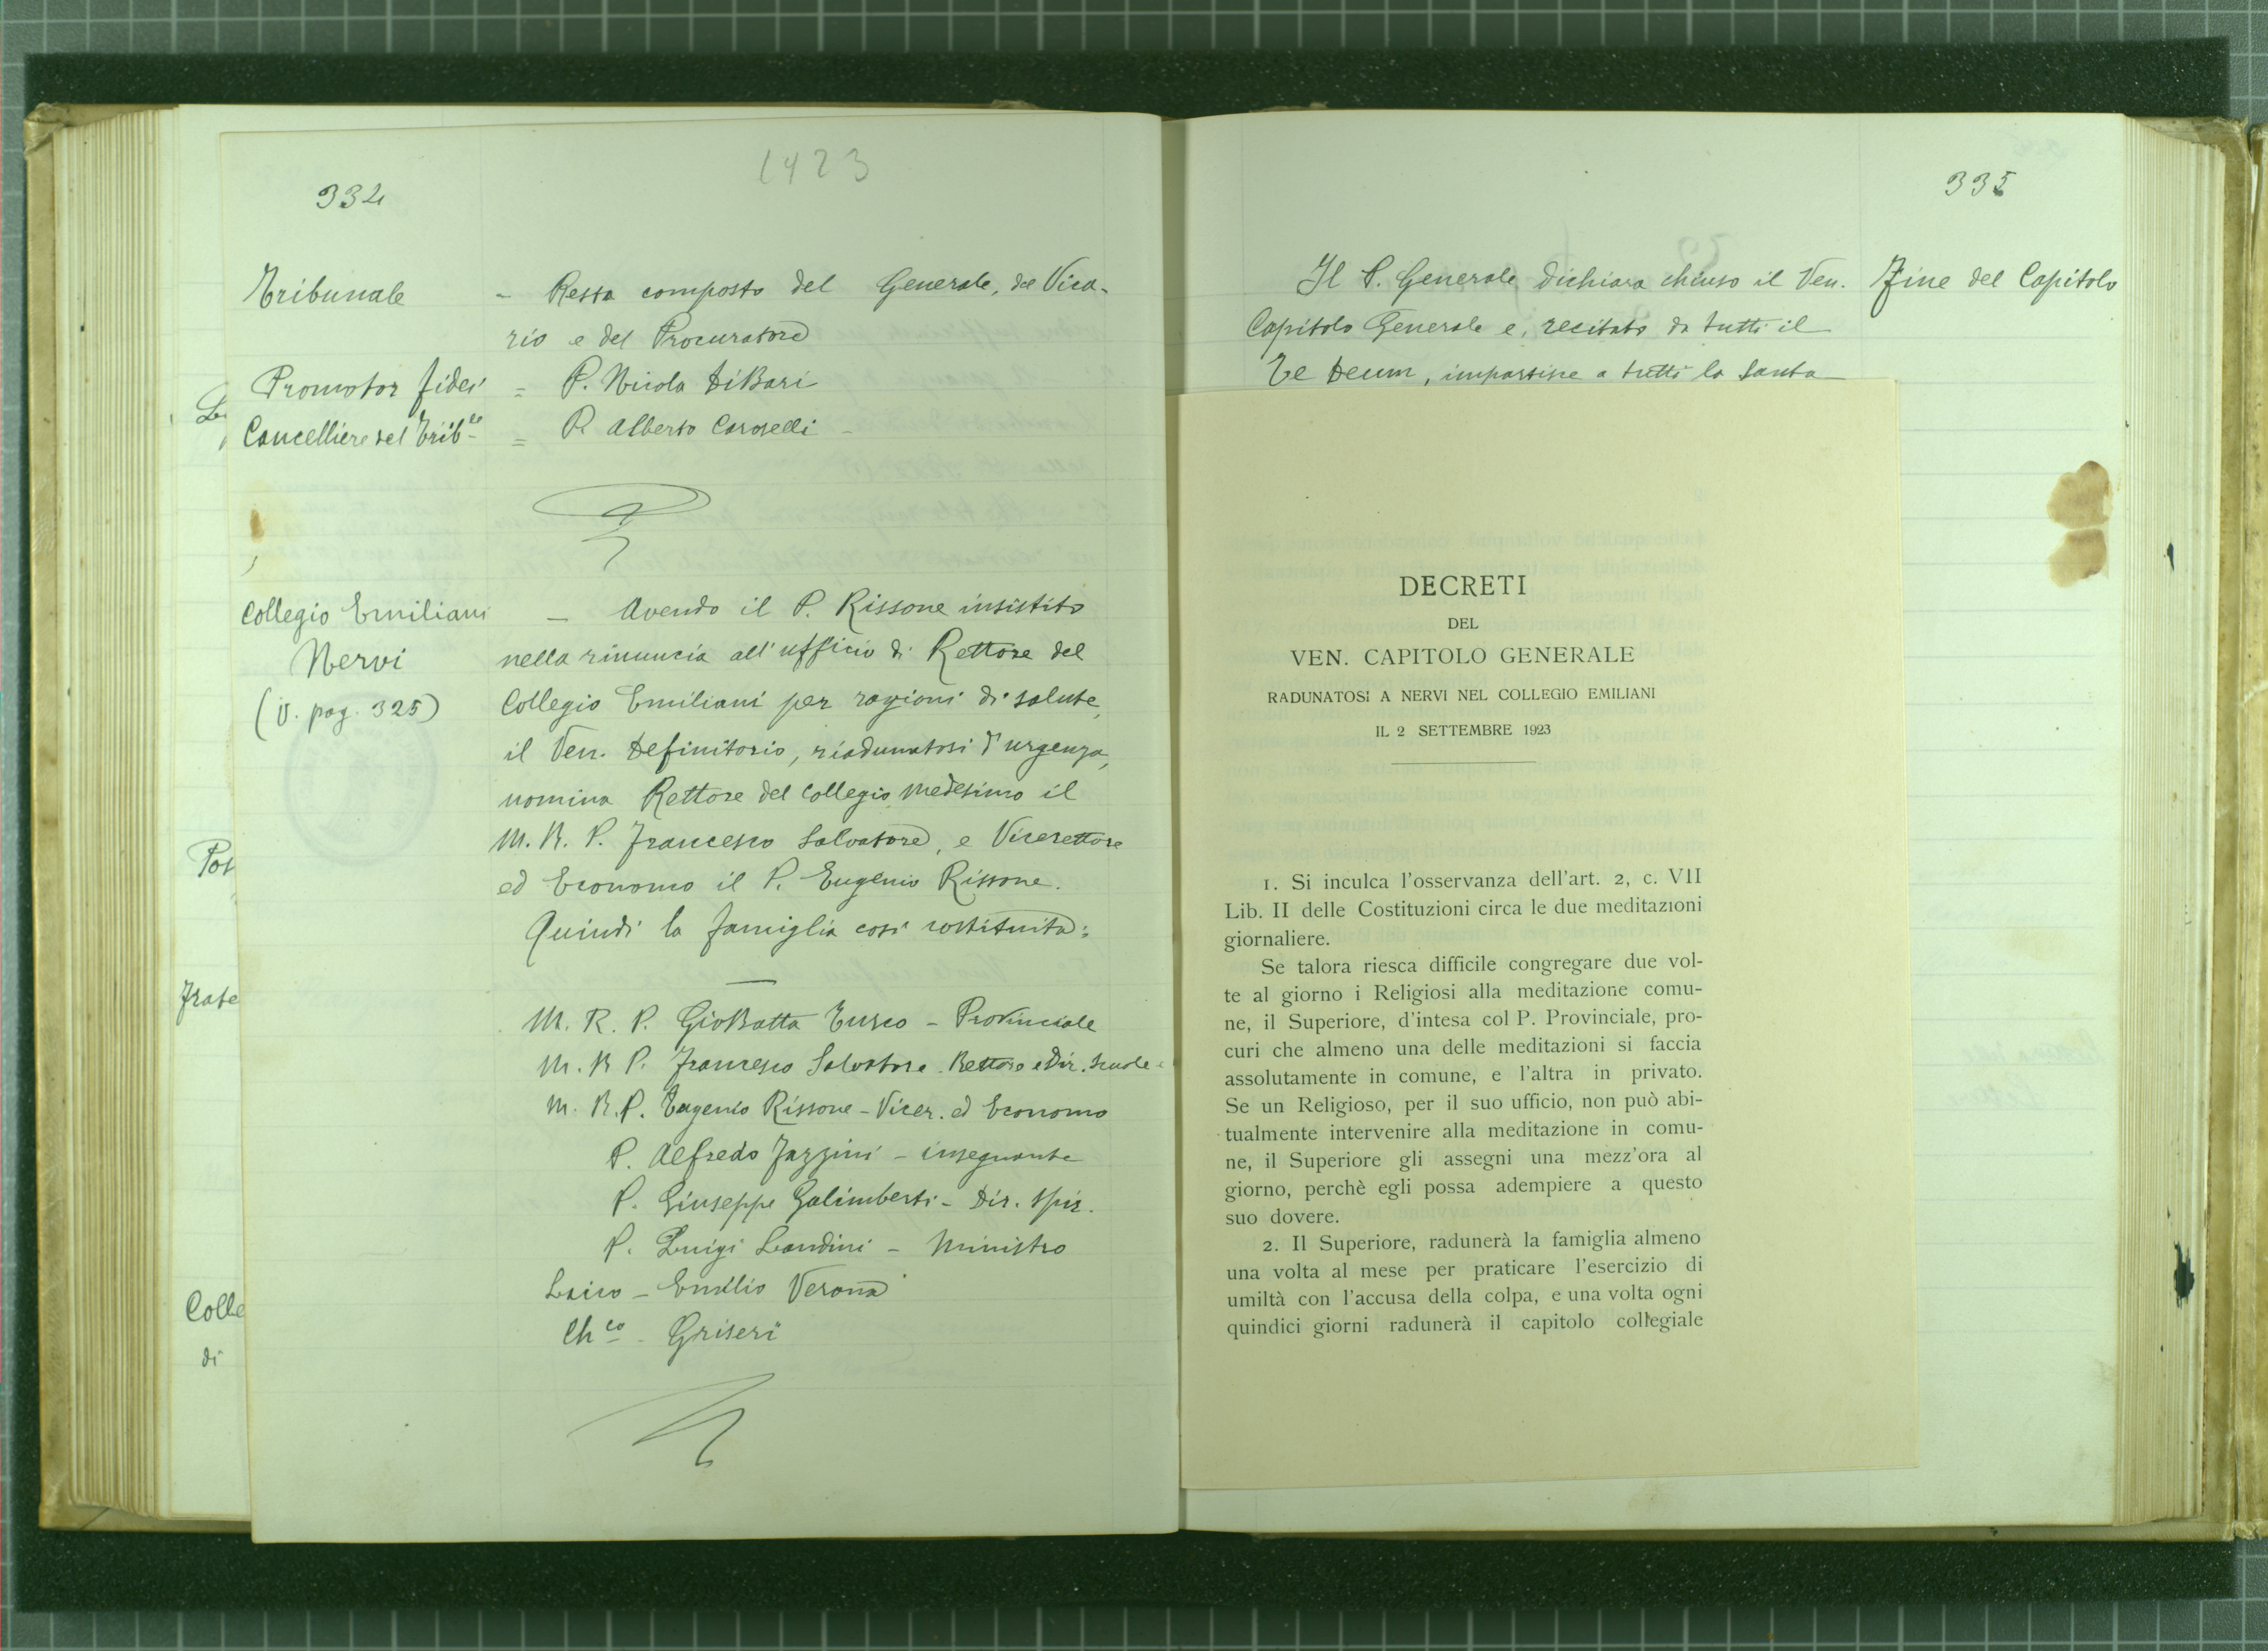 1923
334
Tribunale - Resta composto del Generale, del Vica-
rio e del Procuratore
Promotor fidei = P. Nicola DiBari
Cancelliere del Trib.le = P. Alberto Caroselli -
Collegio Emiliani
Nervi
(V. pag. 325)
- Avendo il P. Rissone insistito
nella rinuncia all'ufficio di Rettore del
Collegio Emiliani per ragioni di salute,
il Ven. Definitorio, riadunatosi d'urgenza,
nomina Rettore del Collegio medesimo il
M. R. P. Francesco Salvatore, e Vicerettore
ed Economo il P. Eugenio Rissone.
Quindi la famiglia così costituita:
M. R. P. GioBatta Turco - Provinciale
M. R. P. Francesco Salvatore. Rettore e Dir. Scuole
M. R. P. Eugenio Rissone - Vicer. ed Economo
P. Alfredo Fazzini - insegnante
P. Giuseppe Galimberti - Dir. Spir.
P. Luigi Landini - Ministro
Laico - Emilio Verona
Ch.co - Griseri
Pos
Frate
Colle
di
335
Il P. Generale dichiara chiuso il Ven.
Capitolo Generale e, recitato da tutti il
Te Deum, impartisce a tutti la Santa
Fine del Capitolo
DECRETI
DEL
VEN. CAPITOLO GENERALE
RADUNATOSI A NERVI NEL COLLEGIO EMILIANI
IL 2 SETTEMBRE 1923
1. Si inculca l'osservanza dell'art. 2, c. VII
Lib. II delle Costituzioni circa le due meditazioni
giornaliere.
Se talora riesca difficile congregare due vol-
te al giorno i Religiosi alla meditazione comu-
ne, il Superiore, d'intesa col P. Provinciale, pro-
curi che almeno una delle meditazioni si faccia
assolutamente in comune, e l'altra in privato.
Se un Religioso, per il suo ufficio, non può abi-
tualmente intervenire alla meditazione in comu-
ne, il Superiore gli assegni una mezz'ora al
giorno, perchè egli possa adempiere a questo
suo dovere.
2. Il Superiore, radunerà la famiglia almeno
una volta al mese per praticare l'esercizio di
umiltà con l'accusa della colpa, e una volta ogni
quindici giorni radunerà il capitolo collegiale